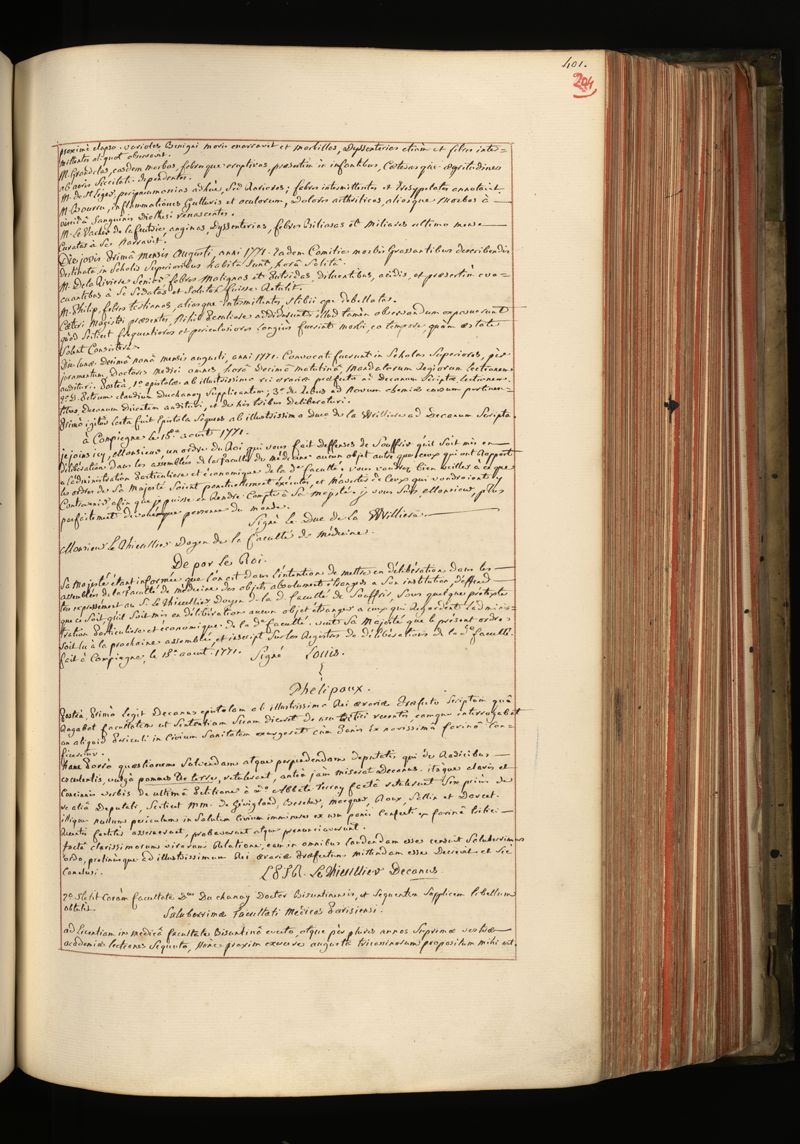 401.
204
proximè elapso. variolas Benignì moris enarravit et morbillos, Dyssenterias etiam et febres inter=
mittentes aliquot observavit.
M. Grandclas, easdem morbos, febresque eruptivas, præsertim in infantibus, Cæterasque ægritudines
ab aeris Siccitate dependentes.
M. de St Leger, peripneumonias adhuc, Sed Rariores; febres intermittentes et Erysipelata annotavit.
M. Bourru, inflammationes Gutturis et oculorum, dolores arthriticos, aliosque Morbos à
nimiâ Sanguinis Diathesi renascentes.
M. Le Vacher de la feutrie, anginas, Dyssenterias, febres Biliosas et Miliares ultimo mense
Curatas à Se Narravit.
Die jovis Primâ Mensis Augusti, anni 1771. Eadem Comitia morbis Grassantibus describendis
destinata in Scholis Superioribus habita Sunt, horâ Solitâ.
M. De la Riviere Senior febres Malignas et putridas, diluentibus, acidis, et præsertim eva=
cuantibus à Se Sedatas et Solutas fuisse Retulit.
M. Philip, febres tertianas, aliasque Intermittentes, Stibii ope Debellatas.
Cæteri Magistri præsentes, Nihil Peculiare addiderunt; illud tamen observandum exposuerunt
quod Scilicet frequentiores et periculosiores Longius fuerint morbi, eo tempore quàm æstate
Solent Consistere.
Die lunæ Decimâ nonâ mensis augusti, anni 1771. Convocati fuerunt in Scholas Superiores, per
juramentum, Doctores Medici omnes, horâ Decimâ matutinâ Mandatorum Regiorum Lectionem
audituri. Posteà, 1° epistolæ ab illustrissimo rei ærariæ præfecto ad Decanum Scriptæ Lectionem.
2° D. Petrum Claudium Duchanoy Supplicantem; 3° de Rebus ad Novum chemiæ cursum pertinen=
tibus Decanum Dicentem audituri, et de his tribus Deliberaturi.
Primò igitur Lecta fuit Epistola Sequens ab illustrissimo Duce de la Vrilliere ad Decanum Scripta.
à Compiegne le 18.e aout 1771.
je joins icy, Monsieur, un ordre du Roi qui vous fait deffenses de Souffrir qu'il Soit mis en
Délibération dans les assemblées de la faculté de Médecine aucun objet autre que ceux qui ont Rapport
à l'administration particuliere et économique de la de faculté. vous voudrez bien veiller à ce que
les ordres de Sa Majesté Soient ponctuellement exécutés, et M'avertir de Ceux qui voudroient y
Contrevenir, afin que je puisse en Rendre Compte à Sa Majesté. je vous Suis, Monsieur, plus
parfaitement dévoué que personne du monde.
Signé Le Duc de la Vrilliere
Monsieur le Thieullier Doyen de la faculté de médecine.
De par le Roi.
Sa Majesté étant informée que l'on est dans l'intention de mettre en délibération dans les
assemblées de la faculté de Médecine des objets absolument étrangers à Son institution, Défend
très expressément au Sr. Le Thieullier Doyen de la d. faculté de Souffrir, Sous quelque prétexte
que ce Soit qu'il Soit mis en délibération aucun objet étranger à ceux qui Regardent l'adminis=
tration Particuliere et économique de la de faculté. veut Sa Majesté que le présent ordre
Soit lu à la prochaine assemblée, et inscript Sur les Registres de délibérations de la de faculté.
fait à Compiegne, le 18.e aout 1771. Signé Louis.
Phélipaux.
Posteà, Primò legit Decanus epistolam ab illustrissimo Rei ærariæ Præfecto Scriptam quâ
Rogabat facultatem ut Sententiam Suam diceret de usu tritici recentis, eamque interrogabat
an aliquid Periculi in Civium Sanitatem exurgeret cum Panis ex novissimâ farinâ Con=
ficeretur.
Hanc Porrò quæstionem Solvendam atque perpendendam deputatis qui de Radicibus
esculentis, vulgò pommes De terre, retulerant, anteà jàm miserat Decanus. itaque claris et
Concinnis verbis de ultimâ Petitione à D.o Abbate Terray factâ retulerunt Sex prius de
re aliâ Deputati, Scilicet MM. de Gévigland, Bercher, Macquer, Roux, Sallin et Darcet.
illique nullum periculum in Salutem Civium imminere ex usu panis Confecti ex farinâ tritici
Recentis fertilis asseruerunt, probaverunt atque pronunciaverunt.
factâ Clarissimorum virorum Relatione, eam in omnibus Laudandam esse censuit Saluberrimus
ordo, pertinùsque Ad illustrissimum Rei ærariæ Præfectum mittendam esse Decrevit. et Sic
Conclusi.
L. P. F. R. Le Thieullier Decanus.
2° Stetit Coràm facultate D.us Duchanoy Doctor Bisuntinensis, et Sequentem Supplicem libellum
obtulit.
Saluberrimæ facultati Medicæ Parisiensi.
ad licentiam in medicâ facultate Bisuntinâ evecto, atque per plures annos Supremæ vestræ
academiæ lectiones Sequuto, Nunc proxim exercere augustæ tricassinorum propositum mihi est.